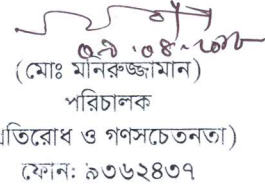 ০৯.০৪.২০১৮
(মোঃ মনিরুজ্জামান)
পরিচালক
তিরোধ ও গণসচেতনতা)
ফোন: ৯৩৬২৪৩৭